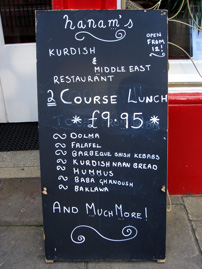 hanam's
OPEN
FROM
12!
KURDISH
&
MIDDLE EAST
RESTAURANT
2 COURSE LUNCH
* £9.95 *
DOLMA
FALAFEL
BARBEQUE SHISH KEBABS
KURDISH NAAN BREAD
HUMMUS
BABA GHANOUSH
BAKLAWA
AND MUCH MORE!